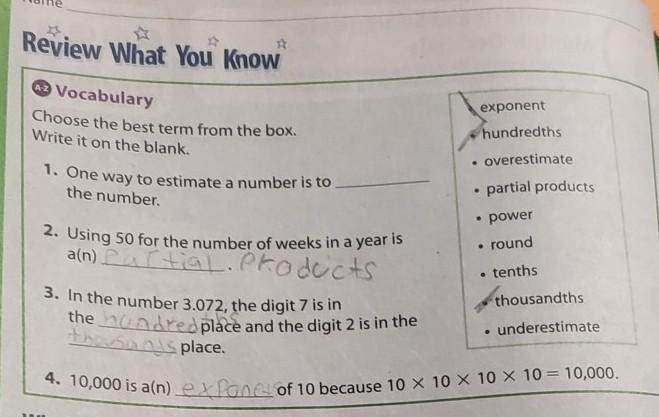 Review What You Know
A-Z Vocabulary
Choose the best term from the box.
Write it on the blank.
1. One way to estimate a number is to ________
the number.
2. Using 50 for the number of weeks in a year is
a(n) Partial. Products
3. In the number 3.072, the digit 7 is in
the hundredths place and the digit 2 is in the
thousands place.
4. 10,000 is a(n) of 10 because 10 × 10 × 10 × 10 = 10,000.
exponent
hundredths
• overestimate
• partial products
• power
• round
• tenths
thousandths
• underestimate